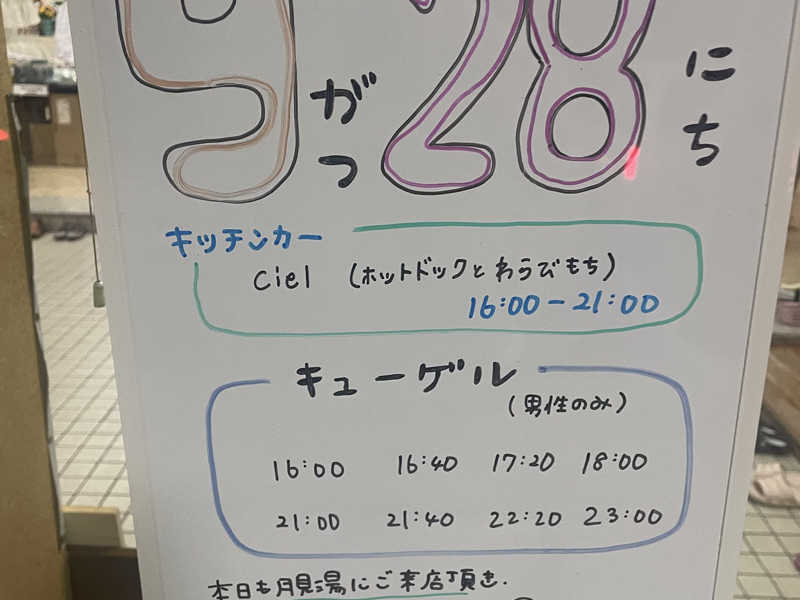 9がつ28にち
キッチンカー
Ciel (ホットドックとわらびもち)
16:00-21:00
キューゲル
(男性のみ)
16:00 16:40 17:20 18:00
21:00 21:40 22:20 23:00
本日も月見湯にご来店頂き.